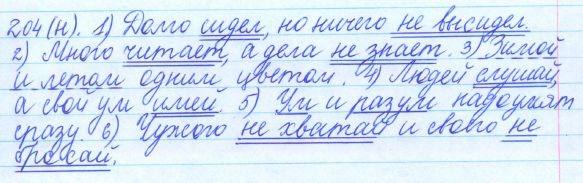 204(н). 1) Долго сидел, но ничего не высидел.
2) Много читает, а дела не знает. 3) Зимой
и летом одним цветом. 4) Людей слушай,
а свой ум имей. 5) Ум и разум надоумят
сразу. 6) Чужого не хватай и своего не
бросай.